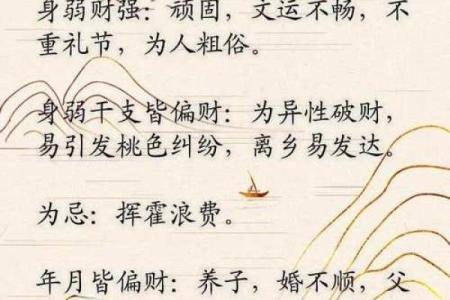 身弱财强：顽固，文运不畅，不
重礼节，为人粗俗。
身弱干支皆偏财：为异性破财，
易引发桃色纠纷，离乡易发达。
为忌：挥霍浪费。
年月皆偏财：养子，婚不顺，父